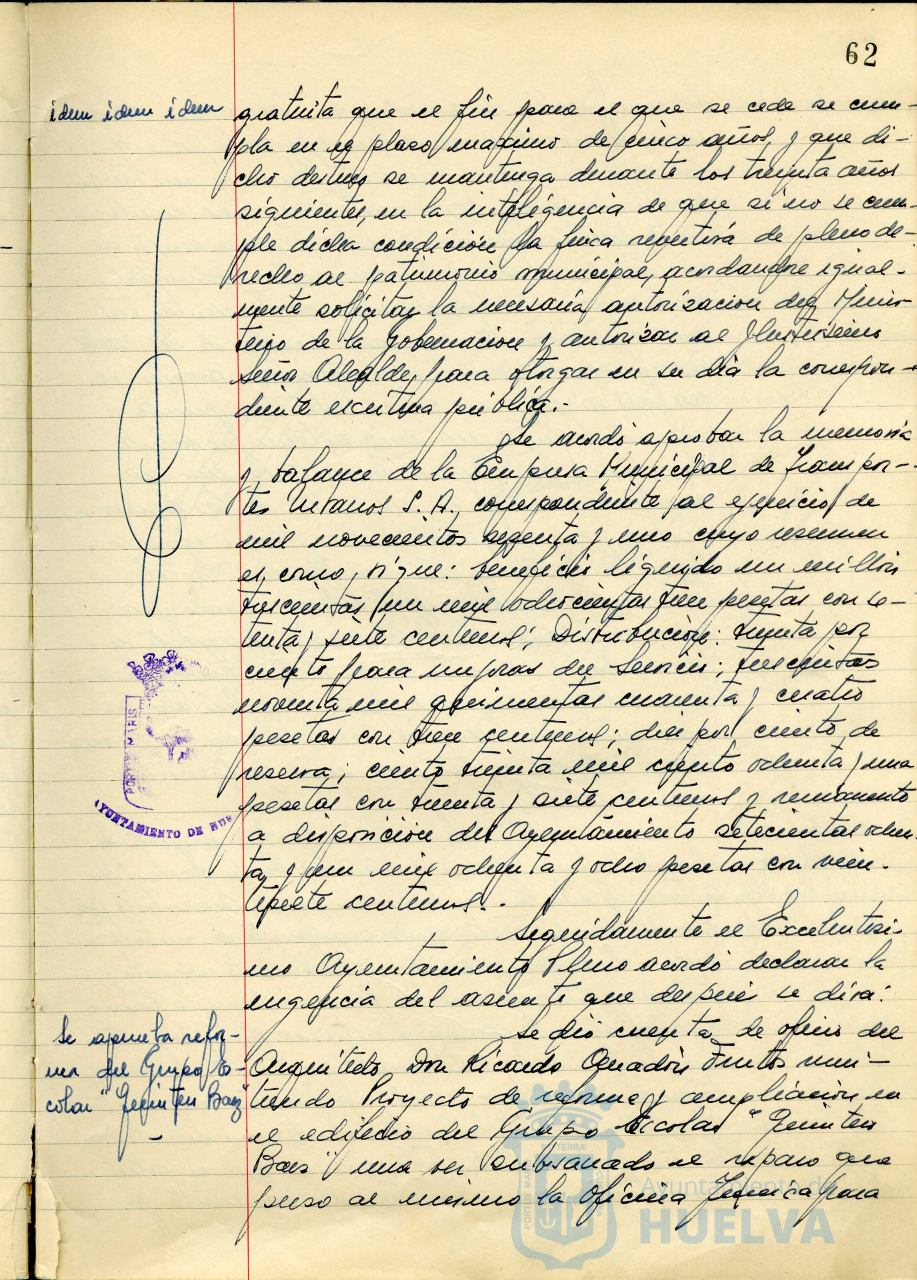 62
idem idem idem
gratuita que el fin para el que se cede se cum-
pla en el plazo maximo de cinco años, y que di-
cho destino se mantenga durante los treinta años
siguientes, en la inteligencia de que si no se cum-
ple dicha condición la finca revertirá de pleno de-
recho al patrimonio municipal, acordandose igual-
mente solicitar la necesaria autorizacion del Minis-
terio de la Gobernacion y autorizar al Ilustrisimo
Señor Alcalde, para otorgar en su dia la correspon-
diente escritura pública.-
Se acordó aprobar la memoria
y balance de la Empresa Municipal de Transpor-
tes Urbanos S. A., correspondiente al ejercicio de
mil novecientos sesenta y uno cuyo resumen
es como sigue: beneficio liquido un millon
trescientas un mil ochocientas trece pesetas con se-
tenta y siete centimos; Distribución: treinta por
ciento para mejoras del Servicio; trescientas
noventa mil quinientas cuarenta y cuatro
pesetas con trece centimos; diez por ciento de
reserva; ciento treinta mil ciento ochenta y una
pesetas con treinta y siete centimos y remanente
a disposición del Ayuntamiento setecientas ochen-
ta y un mil ochenta y ocho pesetas con vein-
tisiete centimos.-
Seguidamente el Excelentisi-
mo Ayuntamiento Pleno acordó declarar la
urgencia del asunto que despues se dirá:
Se aprueba refor-
ma del Grupo Es-
colar "Quintero Baez"
Se dió cuenta de oficio del
Arquitecto Don Ricardo Anadón Frutos remi-
tiendo Proyecto de reforma y ampliación en
el edificio del Grupo Escolar "Quintero
Baez" una vez subsanado el reparo que
puso al mismo la Oficina Tecnica para
PORTUS MARIS
AYUNTAMIENTO DE HUE
Ayuntamiento de
HUELVA